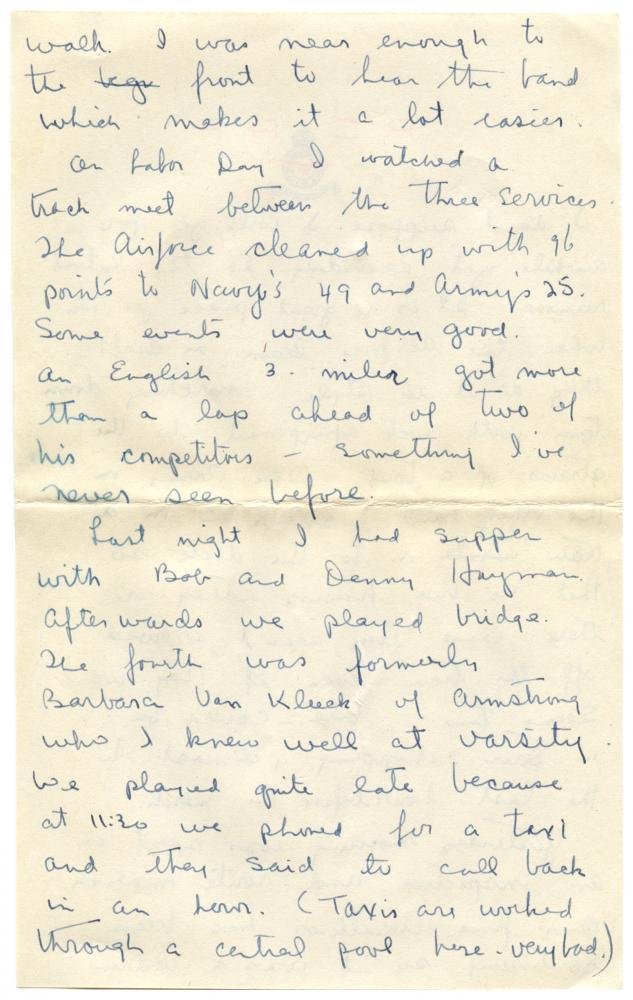 walk. I was near enough to
the front to hear the band
which makes it a lot easier.
On Labor Day I watched a
track meet between the three services.
The Airforce cleaned up with 96
points to Navy's 49 and Army's 25.
Some events were very good.
An English 3 miler got more
than a lap ahead of two of
his competitors - something I've
never seen before.
Last night I had supper
with Bob and Denny Hayman.
Afterwards we played bridge.
The fourth was formerly
Barbara Van Kleek of Armstrong
who I knew well at varsity.
We played quite late because
at 11:30 we phoned for a taxi
and they said to call back
in an hour. (Taxis are worked
through a central pool here - very bad.)